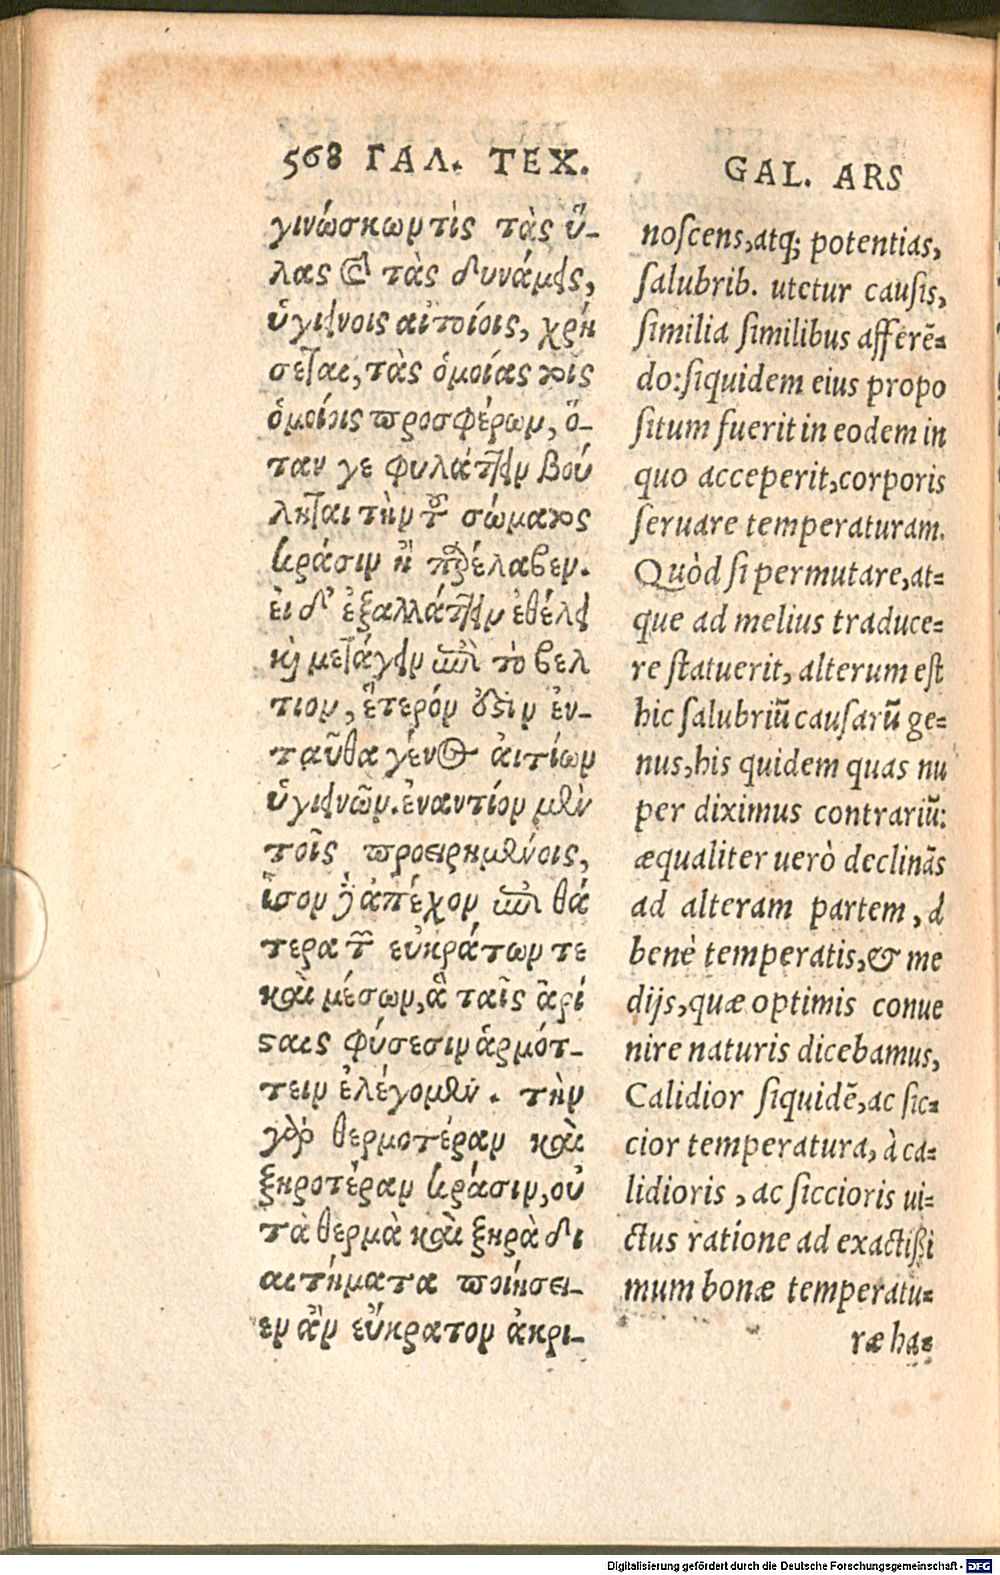 568 ΓΑΛ. ΤΕΧ.
γινώσκων τὶς τὰς ὕ-
λας καὶ τὰς δυνάμεις,
ὑγιεινοῖς αἰτίοις, χρή
σεται, τὰς ὁμοίας τοῖς
ὁμοίοις προσφέρων, ὅ-
ταν γε φυλάττειν βού
ληται τὴν τοῦ σώματος
κρᾶσιν ἣ παρέλαβεν.
εἰ δ' ἐξαλλάττειν ἐθέλει
καὶ μετάγειν ἐπὶ τὸ βελ
τιον, ἕτερόν ὅξιν ἐν-
ταῦθα γένος αἰτίων
ὑγιεινῶν. ἐναντίον μὲν
τοῖς προειρημένοις,
ἴσον δὲ ἀπέχον ἐπὶ θά
τερα τῶν εὐκράτων τε
καὶ μέσων, ἃ ταῖς ἀρί
σταις φύσεσιν ἁρμότ-
τειν ἐλέγομεν. τὴν
γὰρ θερμοτέραν καὶ
ξηροτέραν κρᾶσιν, οὐ
τὰ θερμὰ καὶ ξηρὰ δι
αιτήματα ποιήσει-
εν ἂν εὔκρατον ἀκρι-
GAL. ARS
noscens, atq; potentias,
salubrib. utetur causis,
similia similibus afferē-
do: siquidem eius propo
situm fuerit in eodem in
quo acceperit, corporis
seruare temperaturam.
Quòd si permutare, at-
que ad melius traduce-
re statuerit, alterum est
hic salubriū causarū ge-
nus, his quidem quas nu
per diximus contrariū:
æqualiter uerò declinās
ad alteram partem, à
benè temperatis, & me
dijs, quæ optimis conue
nire naturis dicebamus,
Calidior siquidē, ac sic-
cior temperatura, à ca-
lidioris, ac siccioris ui-
ctus ratione ad exactißi
mum bonæ temperatu-
ræ ha-
Digitalisierung gefördert durch die Deutsche Forschungsgemeinschaft - DFG